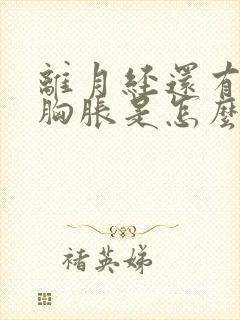 離月經還有
胸脹是怎麼
褚英娣